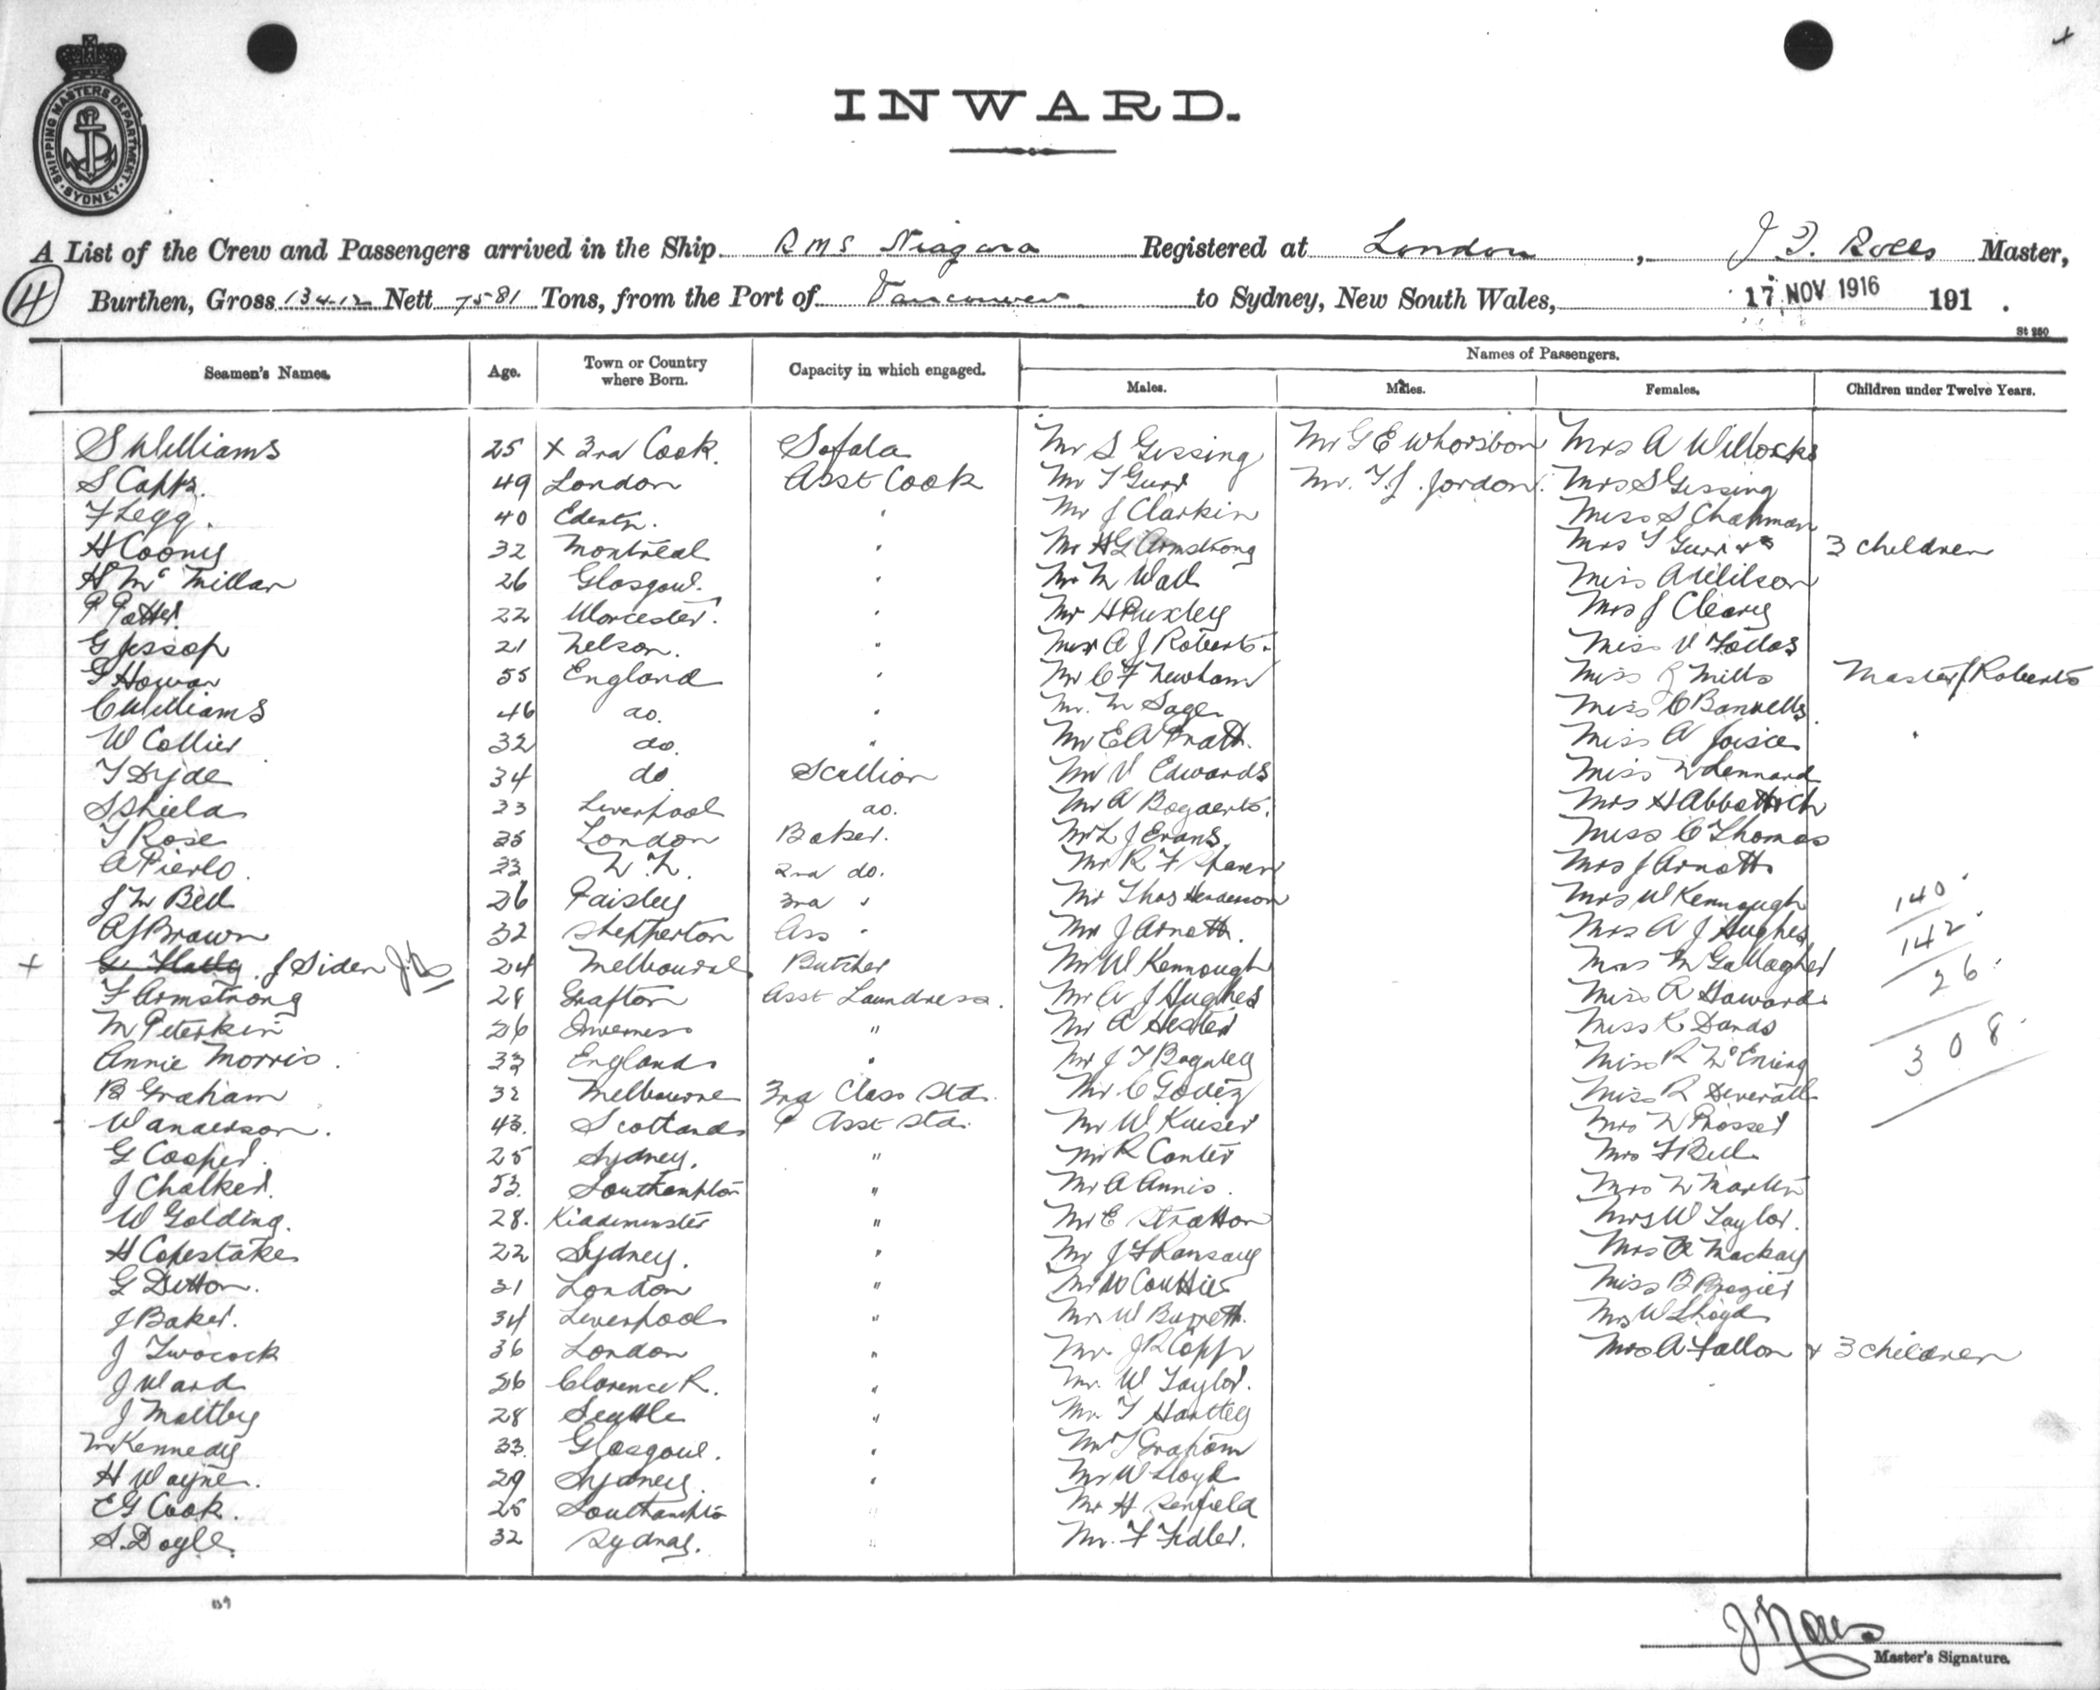 SHIPPING MASTERS DEPARTMENT
SYDNEY
INWARD.
A List of the Crew and Passengers arrived in the Ship RMS Niagara Registered at London, J. Rolls Master,
4 Burthen, Gross 13412 Nett 7581 Tons, from the Port of Vancouver to Sydney, New South Wales, 17 NOV 1916 191 .
St 250
Seamen's Names. Age. Town or Country where Born. Capacity in which engaged. Names of Passengers.
Males. Males. Females. Children under Twelve Years.
S Williams 25 x 3rd Cook. Sofala Mr S Gissing Mr G E Whorsbon Mrs A Willocks
S Capps. 49 London Asst Cook Mr T Gurr Mr. T. J. Jordon. Mrs S Gissing
F Legg. 40 " Mr J Clarkin Miss S Chapman
H Coony 32 Montreal " Mr H G Armstrong Mrs T Gurr & 3 children
H McMillan 26 Glasgow. " Mr M Wall Miss A Wilson
P Potter. 22 Worcester. " Mr H Puxley Mrs J Cleary
G Jessop 21 Nelson. " A J Roberts. Miss V
55 England " Mr C F Newham Miss Mills Master J Roberts
C Williams 46 do. " Mr. M Sage Miss C
W Collier 32 do. " Mr E A Pratt. Miss A
T Dyde 34 do Scullion Mr V Edwards Miss Lennard
S Shields 33 Liverpool do. Mr A Bogaerts. Mrs H
T Rose 35 London Baker. Mr L J Evans Miss C Thomas
A Pierlo. 33 N. Z. 2nd do. Mr R F Mrs J Arnott
J M Bell 26 Paisley 3rd " Mr Thos Henderson Mrs W Kennough 140
A J Brown 32 Shepperton Ass " Mr J Arnott. Mrs A J Hughes 142
+ J Siden 24 Melbourne Butcher Mr W Kennough Mrs M Gallagher 26
F Armstrong 28 Grafton Asst Laundress. Mr A J Hughes Miss A Howard
M Peterkin 26 Inverness " Mr A Hester Miss K Dands
Annie Morris. 33 England " Mr J T Bagnley Miss R 308
B Graham 32 Melbourne 3rd Class Std. Mr. C Miss R Deverall
W Anderson. 43. Scotland P Asst Std. Mr W Kaiser Mrs Prosser
G Cooper. 25 Sydney. " Mr R Canter Mrs F Bell
J Chalker. 53. Southampton " Mr A Annis. Mrs Martin
W Golding. 28. Kidderminster " Mr E Stratton Mrs W Taylor.
H Copestake 22 Sydney. " Mr J Mrs R Mackay
G Dutton. 31 London " Mr W Miss B Brazier
J Baker. 34 Liverpool " Mr. W Barrett. Mrs W Lloyd
J Twocock 36 London " Mr. J R Copp Mrs A Fallon & 3 children
J Ward 26 Clarence R. " Mr. W Taylor.
J Maltby 28 Seattle " Mr T Hartley
M Kennedy 33. Glasgow. " Mr T Graham
H Wayne. 29 Sydney. " Mr W Lloyd
E G Cook. 25 Southampton " Mr H Penfield
S. Doyle. 32 Sydney. " Mr. F Fidler.
Master's Signature.